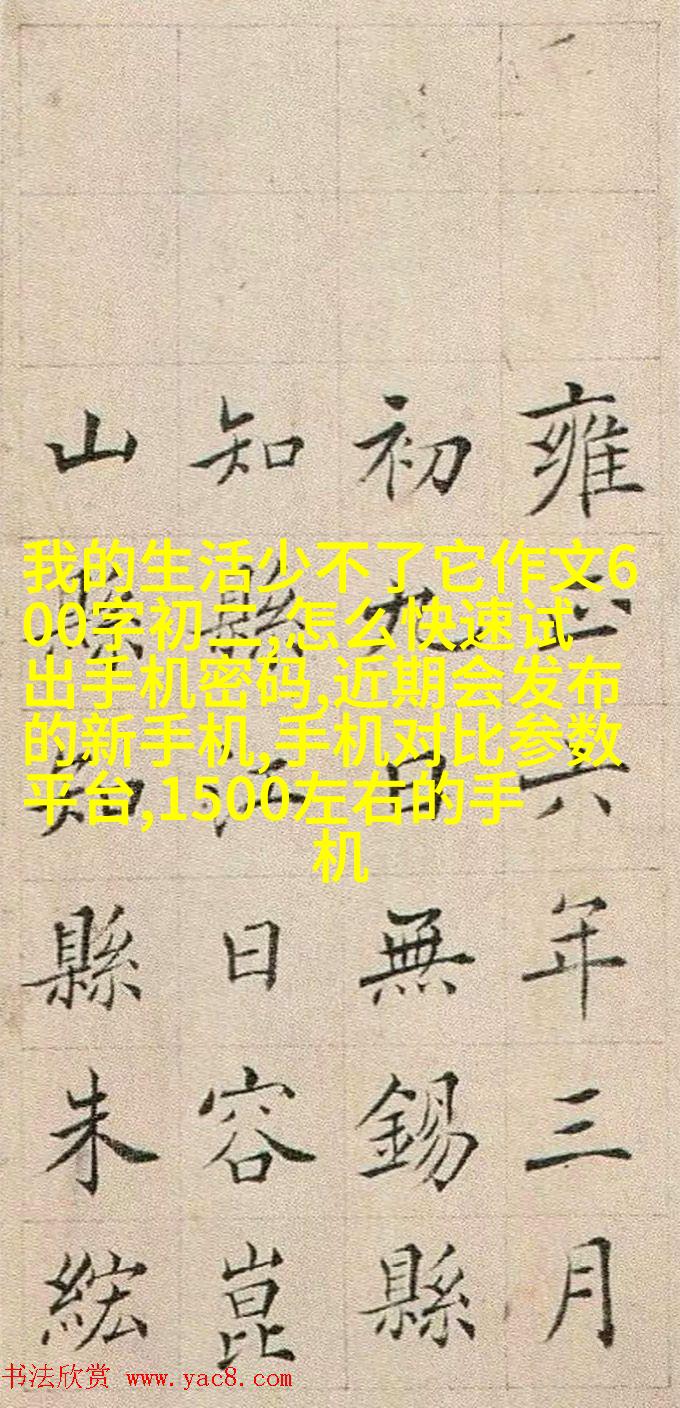 雍正六年三月
初九日無錫縣
知縣江日容崑
山縣知縣朱
我的生活少不了它作文6
00字初二,怎么快速试
出手机密码,近期会发布
的新手机,手机对比参数
平台,1500左右的手
机
书法欣赏 www.yac8.com